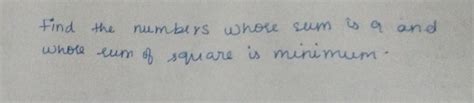 find the numbers whose sum is 9 and
whose sum of square is minimum.